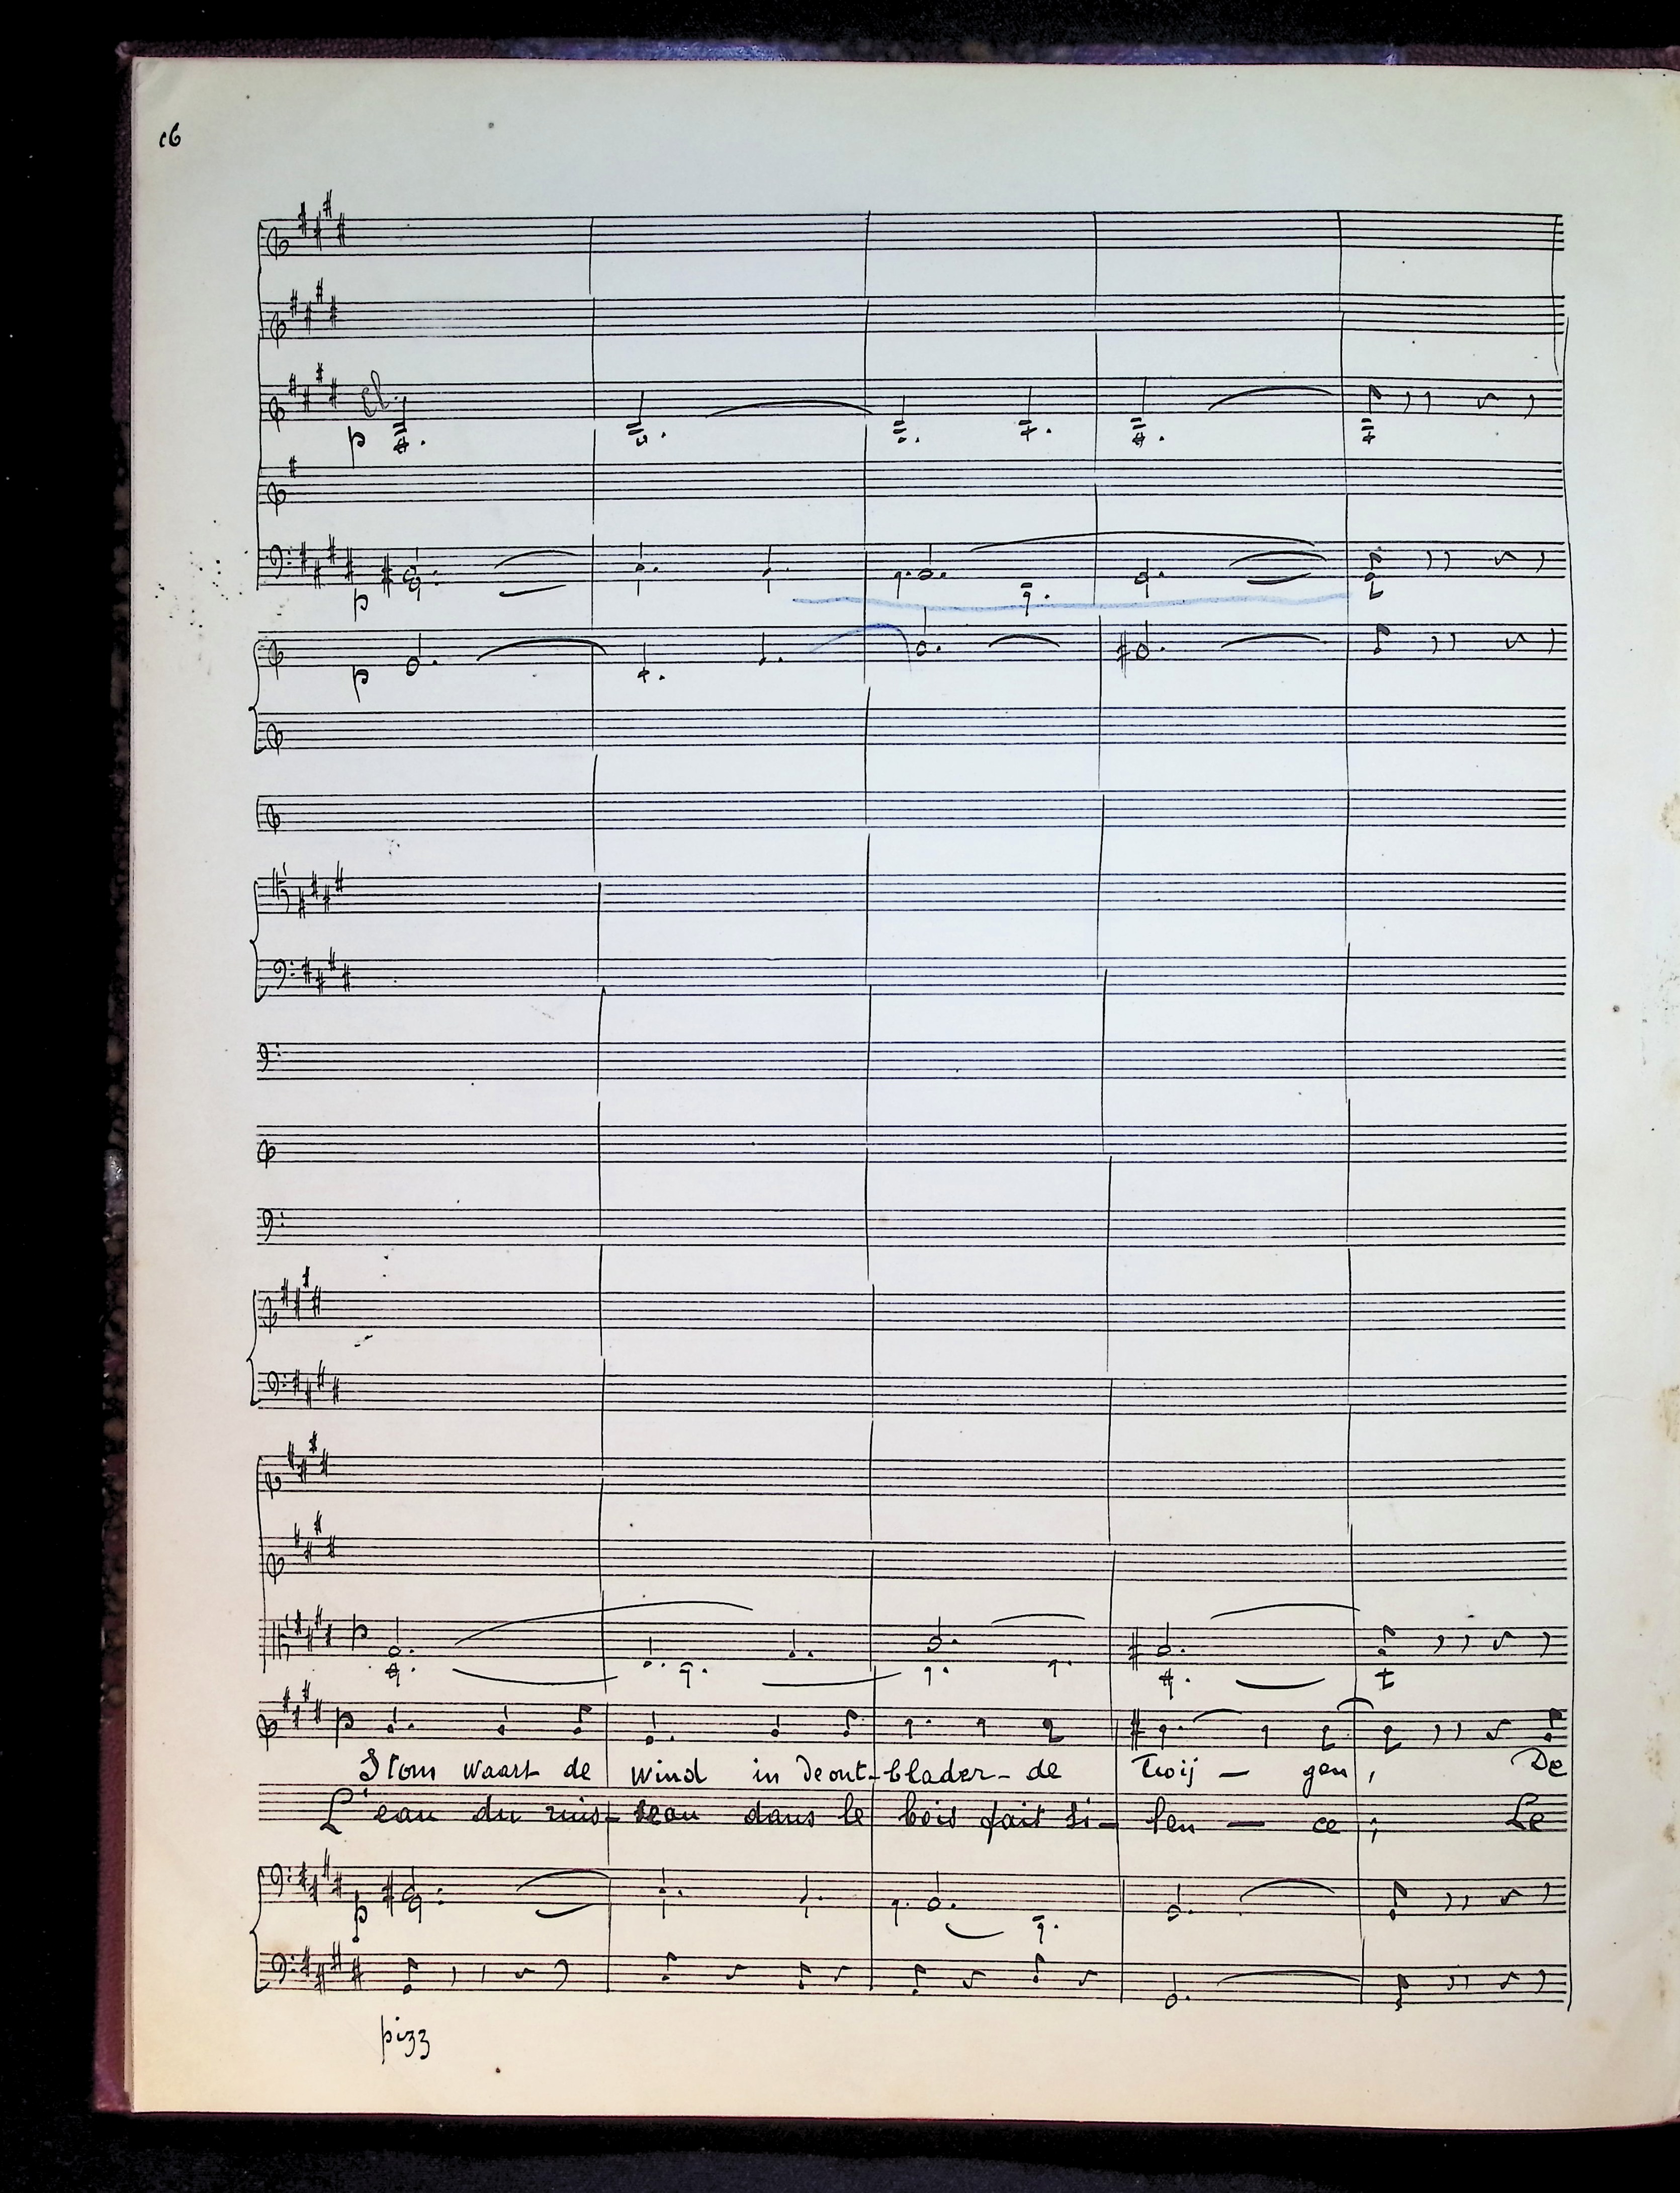 16
cl.
p
p
p
p
p
Stom waart de wind in de ont-blader-de twij — gen, De
L'eau du ruis-seau dans le bois fait si-len — ce; Le
p
pizz